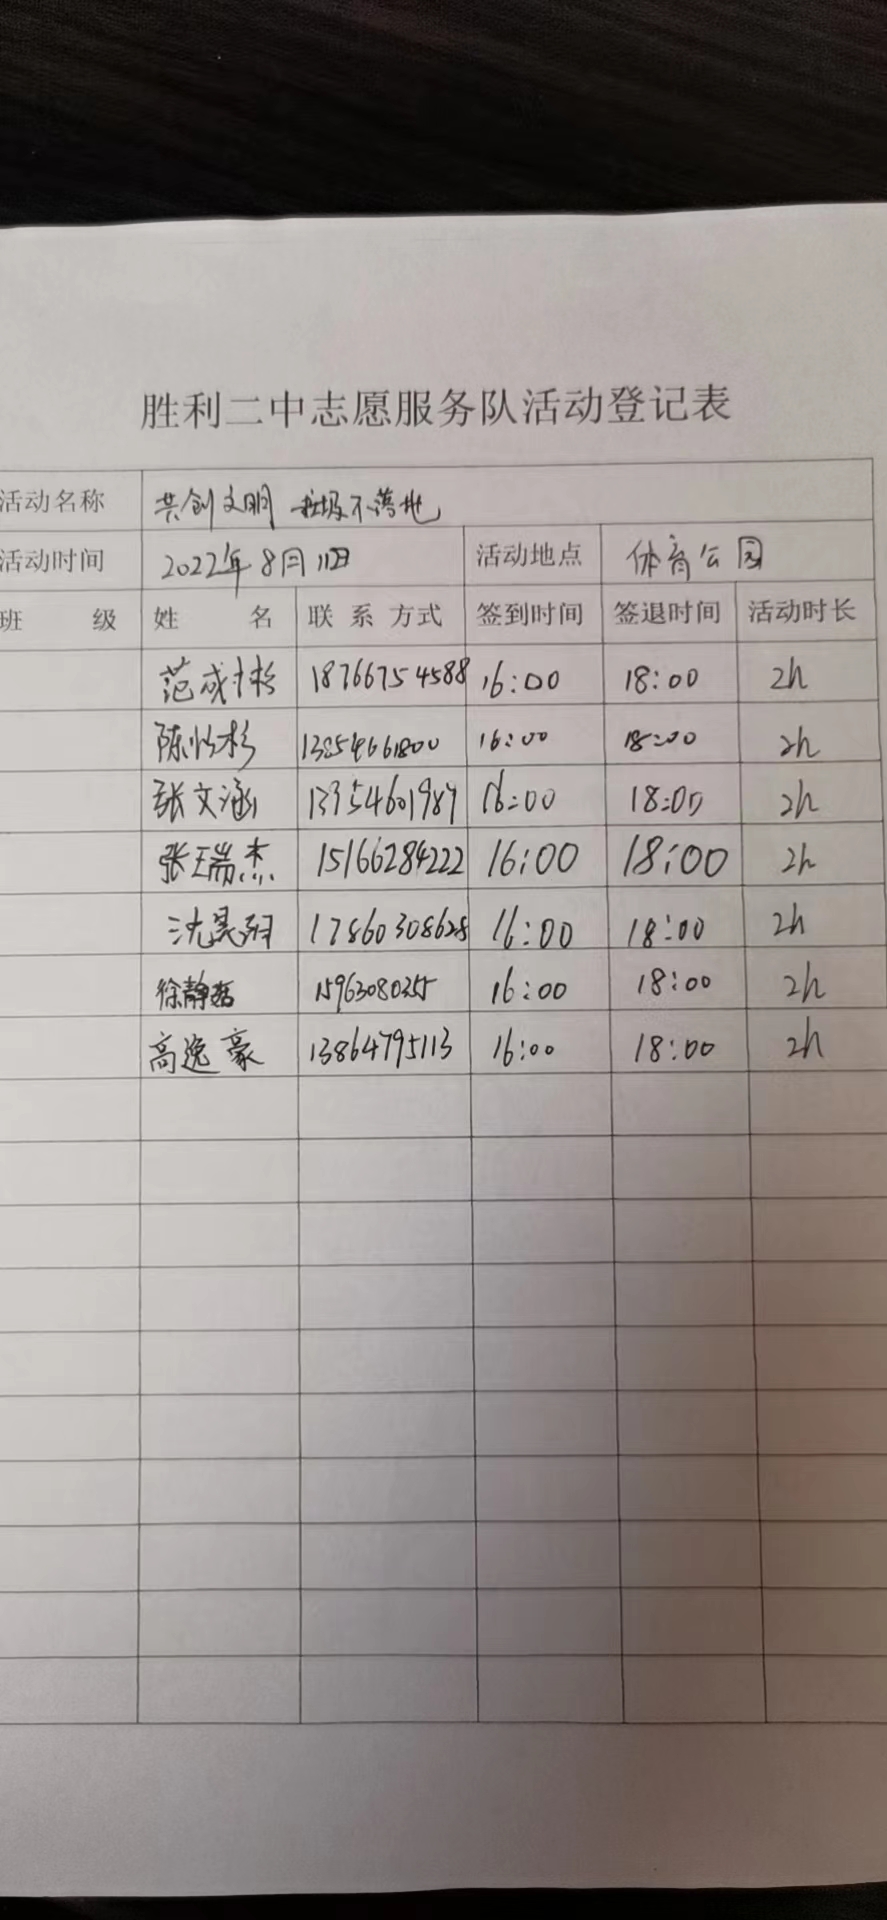 胜利二中志愿服务队活动登记表
活动名称 共创文明 垃圾不落地
活动时间 2022年8月11日 活动地点 体育公园
班 级 姓 名 联系方式 签到时间 签退时间 活动时长
范成彬 18766754588 16:00 18:00 2h
陈怡杉 13854661800 16:00 18:00 2h
张文涵 13954601987 16:00 18:00 2h
张瑞杰 15166284222 16:00 18:00 2h
沈昊 17860308628 16:00 18:00 2h
徐静 15963080355 16:00 18:00 2h
高逸豪 13864795113 16:00 18:00 2h